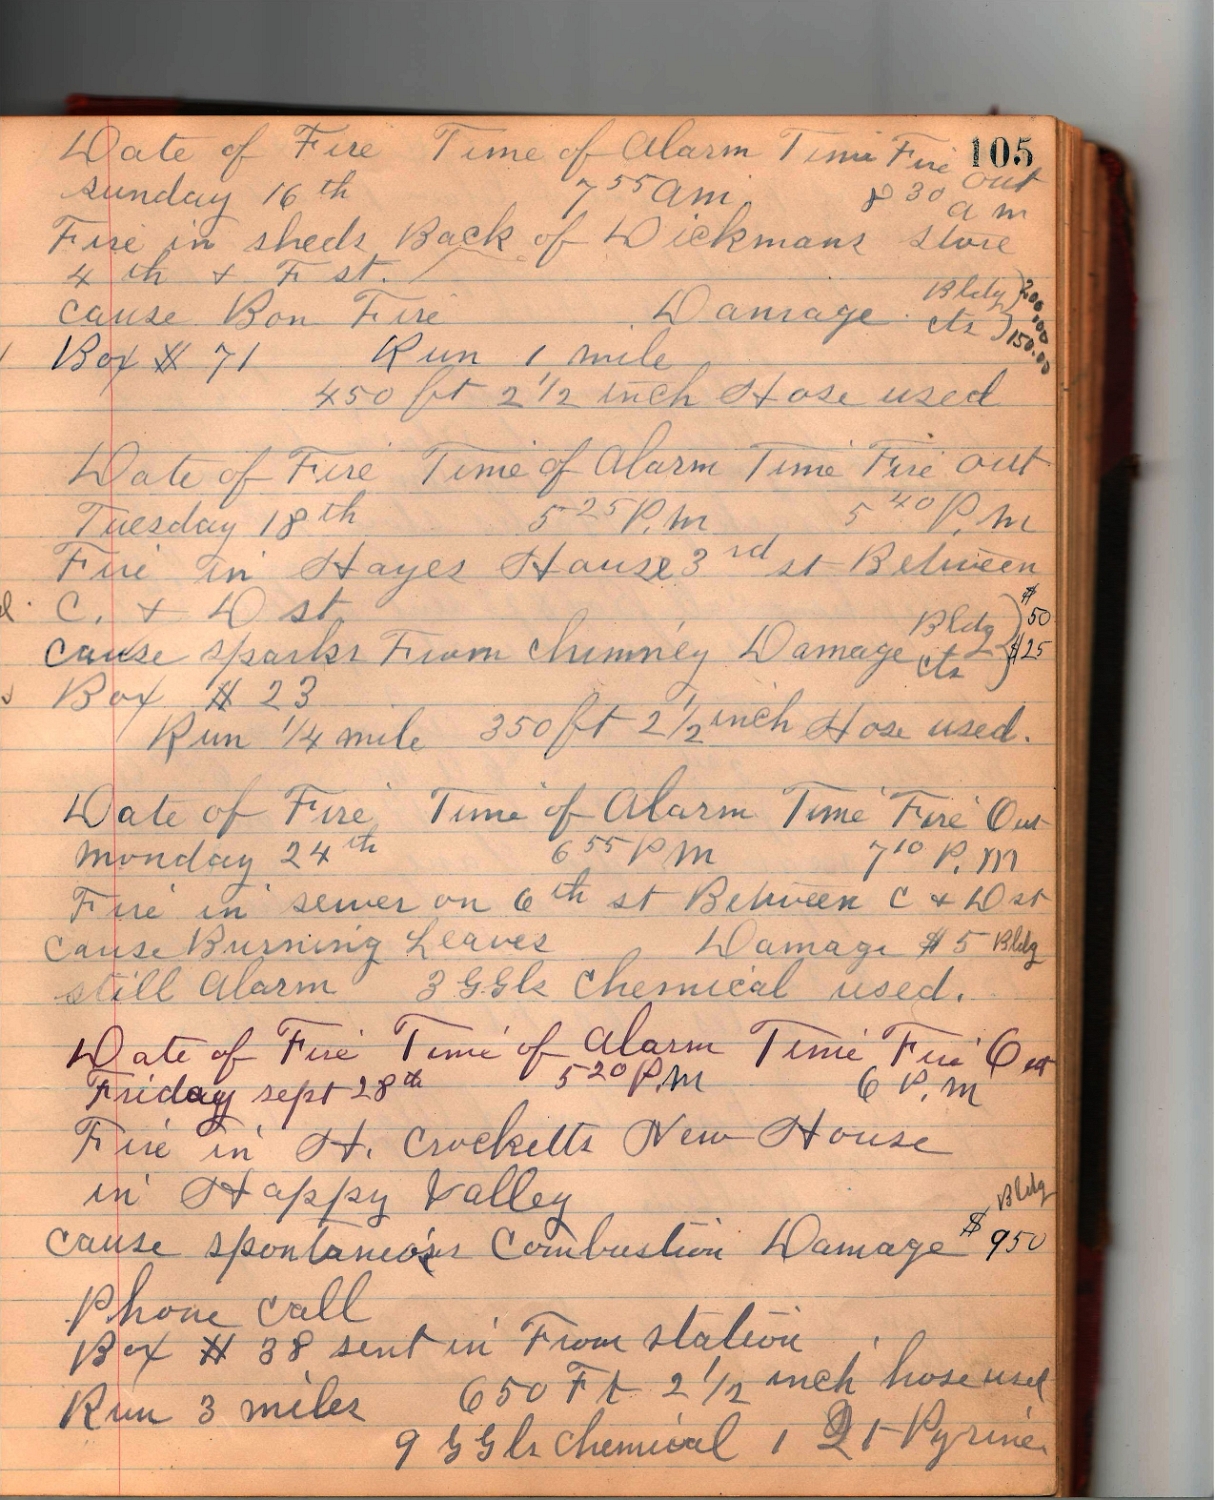 105
Date of Fire Time of Alarm Time Fire out
sunday 16th 7 55 am. 8 30 am
Fire in sheds Back of Dickmans store
4 th & F st.
cause Bon Fire Damage Bldg 200.00
cts 150.00
Box # 71 Run 1 mile
450 ft 2 1/2 inch Hose used
Date of Fire Time of Alarm Time Fire out
Tuesday 18th 5 25 P.m 5 40 P.m
Fire in Hayes House 3rd st Between
C. & D st
cause sparks From chimney Damage Bldg $50
cts $25
Box # 23
Run 1/4 mile 350 ft 2 1/2 inch Hose used.
Date of Fire Time of Alarm Time Fire Out
monday 24th 6 55 P M 7 10 P.M
Fire in sewer on 6th st Between C & D st
cause Burning Leaves Damage $5 Bldg
still Alarm 3 GGls Chemical used.
Date of Fire Time of Alarm Time Fire Out
Friday sept 28th 5 20 P.M 6 P.M
Fire in H. Crocketts New House
in Happy Valley
cause spontaneous Combustion Damage Bldg $950
Phone call
Box # 38 sent in From station
Run 3 miles 650 Ft 2 1/2 inch hose used
9 GGls chemical 1 Qt Pyrine